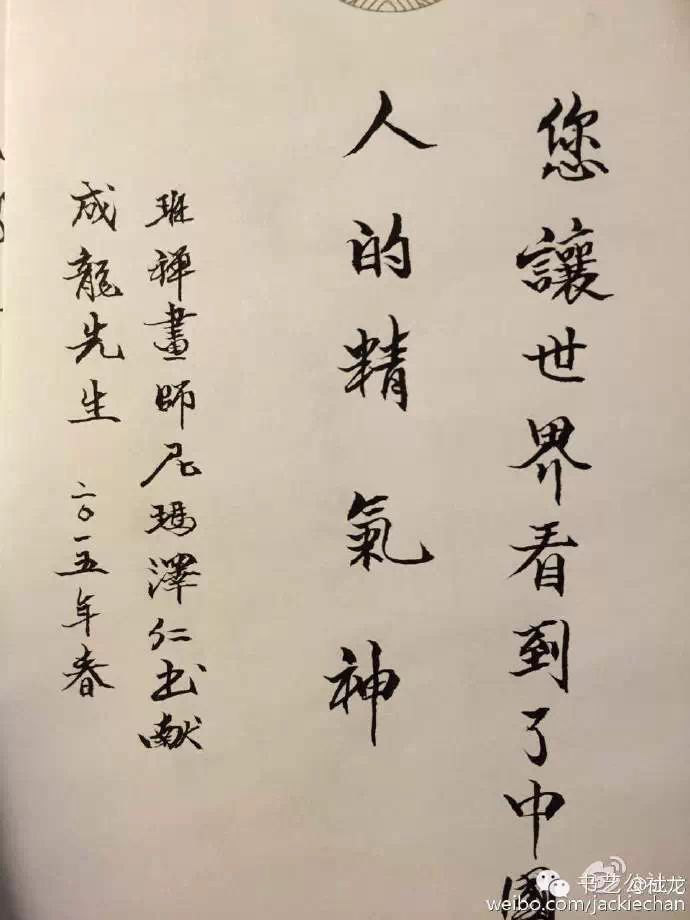 您讓世界看到了中國
人的精氣神
班禅畫師尼瑪澤仁书献
成龍先生 二〇一五年春
书艺公社
@成龙
weibo.com/jackiechan